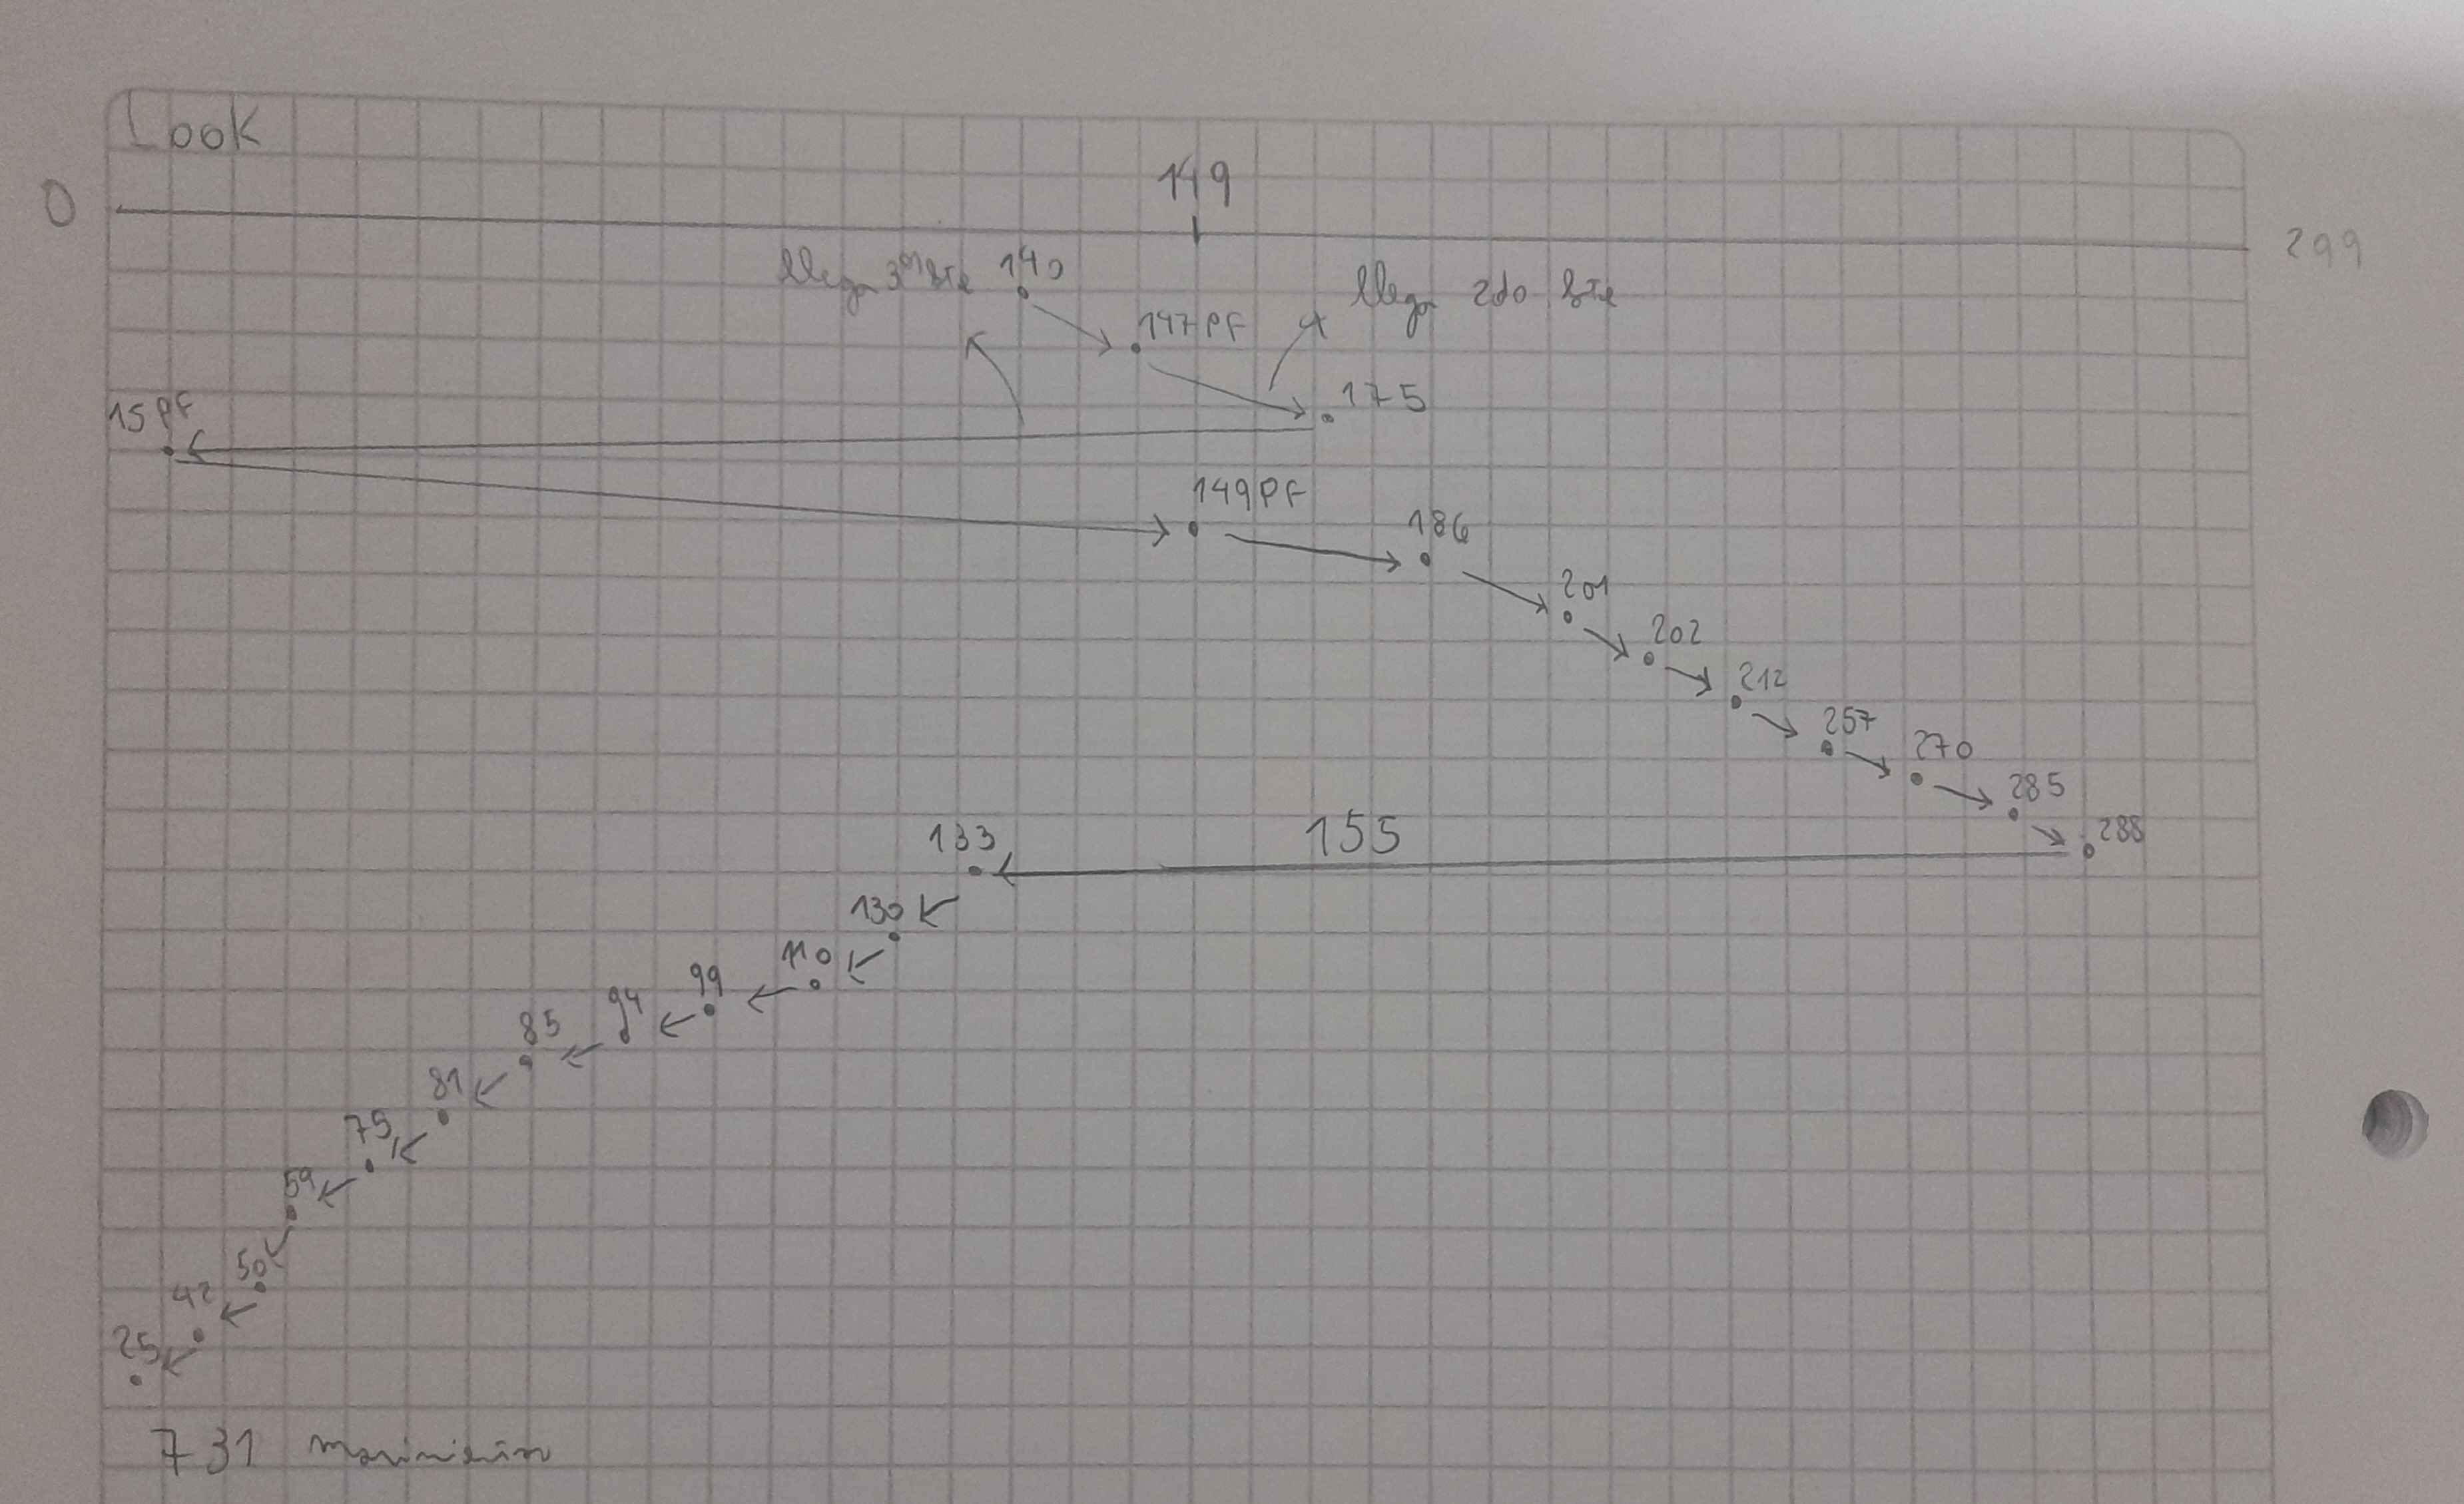 Look
149
0
299
llega 3er lote 140
llega 2do lote
147 PF
175
15 PF
149 PF
186
201
202
212
257
270
285
288
133
155
130
110
99
94
85
81
75
59
50
42
25
731